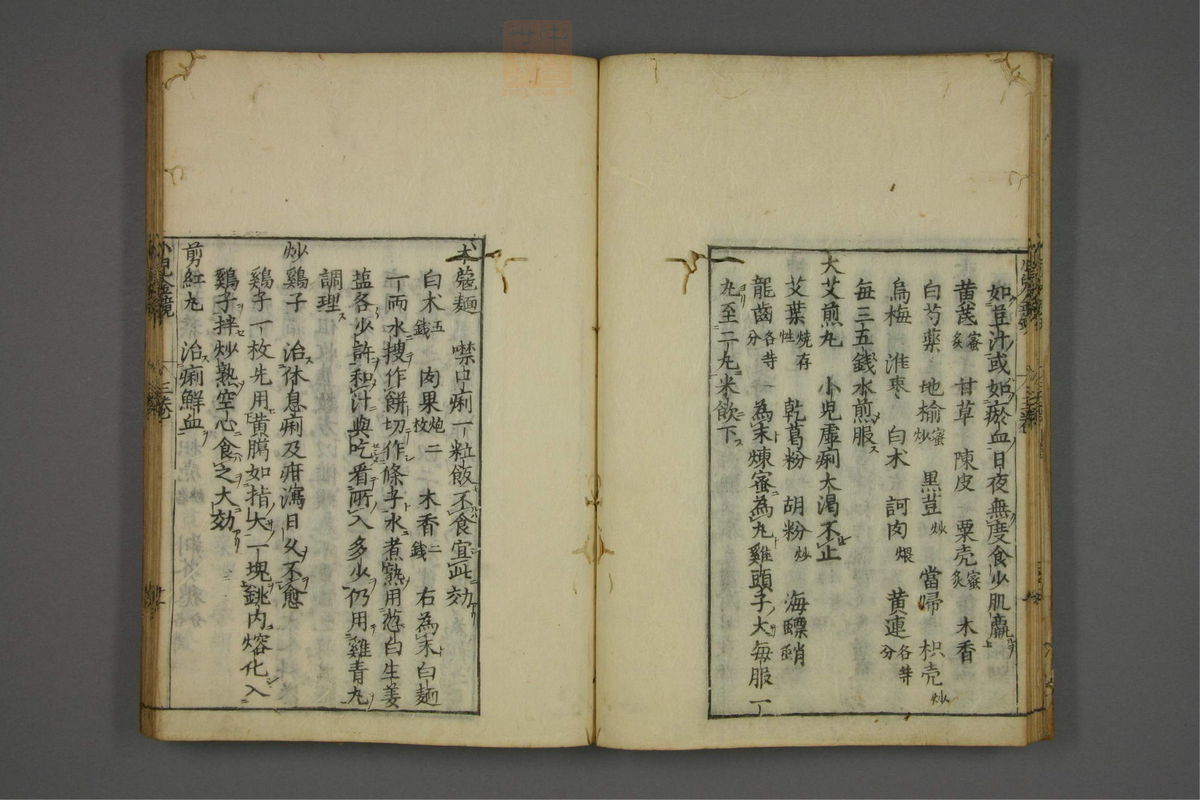 如荳汁或如瘀血日夜無度食少肌羸
黄茋蜜炙 甘草 陳皮 粟壳蜜炙 木香
白芍藥 地榆蜜炒 黒荳炒 當帰 枳壳炒
烏梅 淮枣 白术 訶肉煨 黄連各等分
每三五錢水煎服
大艾煎丸 小兒虚痢大渴不止
艾葉燒存性 乾葛粉 胡粉炒 海螵蛸
龍齒各等分 一為末煉蜜為丸雞頭子大每服一
丸至二丸米飲下
木蔻麺 噤口痢一粒飯不食宜此効
白术五錢 肉果炮二枚 木香二錢 右為末白麺
一両水搜作餅切作條子水煮熟用葱白生姜
塩各少許和汁與吃看所入多少仍用雞青丸
調理
炒鷄子 治休息痢及疳瀉日久不愈
鷄子一枚先用黄臈如指大一塊銚内熔化入
鷄子拌炒熟空心食之大効
剪紅丸 治痢鮮血